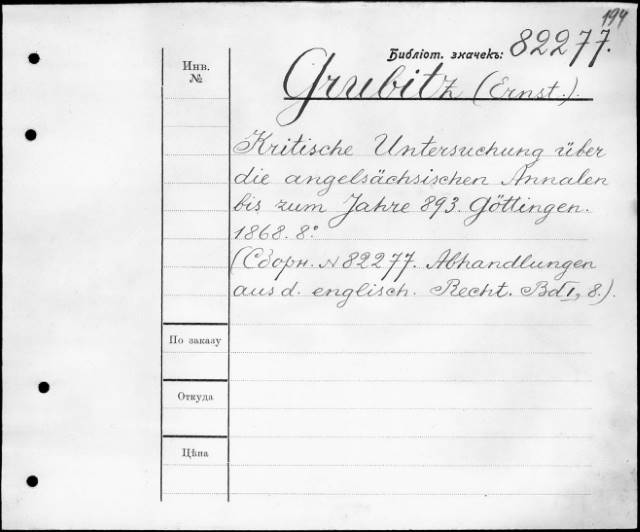 194
Библіот. значекъ: 82277.
Инв.
№
Grubitz (Ernst.).
Kritische Untersuchung über
die angelsächsischen Annalen
bis zum Jahre 893. Göttingen.
1868. 8°
(Сборн. № 82277. Abhandlungen
aus d. englisch. Recht. Bd I, 8.).
По заказу
Откуда
Цѣна